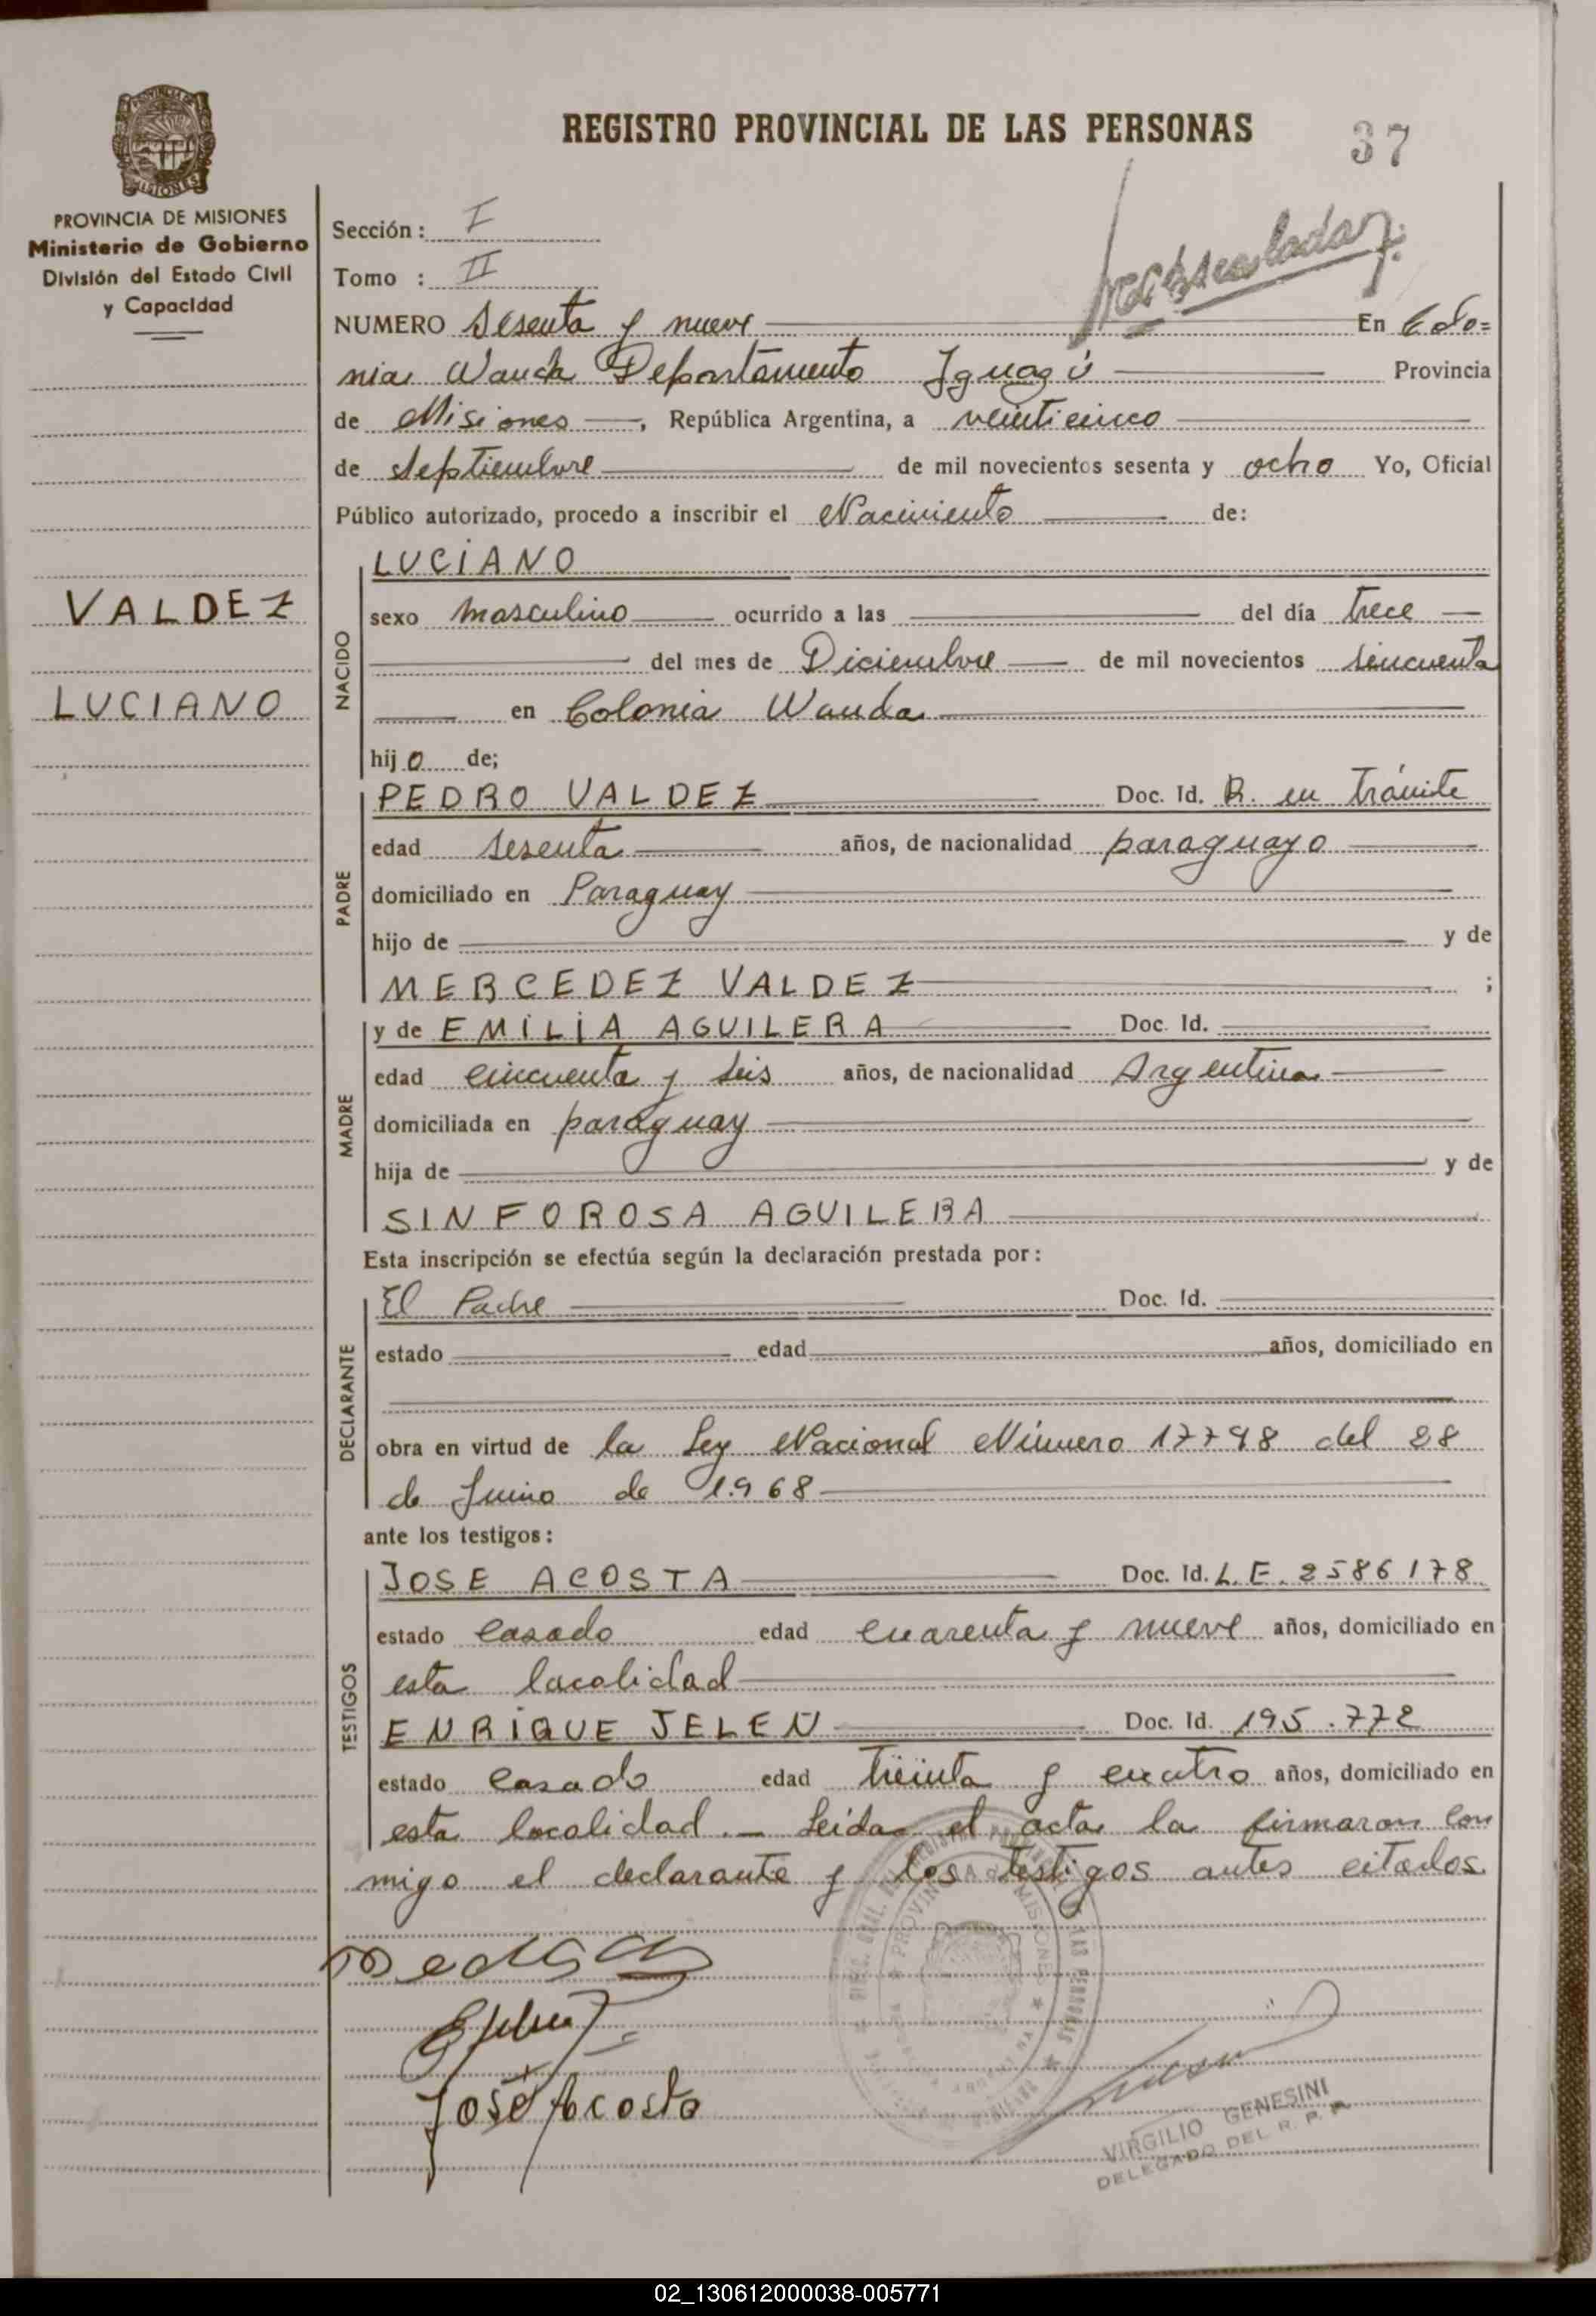 REGISTRO PROVINCIAL DE LAS PERSONAS
37
PROVINCIA DE MISIONES
Ministerio de Gobierno
División del Estado Civil
y Capacidad
VALDEZ
LUCIANO
Sección: I
Tomo : II
NUMERO Sesenta y nueve En Colo=
nia Wanda Departamento Iguazú Provincia
de Misiones, República Argentina, a veinticinco
de septiembre de mil novecientos sesenta y ocho Yo, Oficial
Público autorizado, procedo a inscribir el Nacimiento de:
NACIDO
LUCIANO
sexo masculino ocurrido a las del día trece
del mes de Diciembre de mil novecientos sincuenta
en Colonia Wanda
hijo de;
PADRE
PEDRO VALDEZ Doc. Id. R. en trámite
edad sesenta años, de nacionalidad paraguayo
domiciliado en Paraguay
hijo de y de
MERCEDEZ VALDEZ ;
MADRE
y de EMILIA AGUILERA Doc. Id.
edad cincuenta y seis años, de nacionalidad Argentina
domiciliada en paraguay
hija de y de
SINFOROSA AGUILERA
Esta inscripción se efectúa según la declaración prestada por:
DECLARANTE
El Padre Doc. Id.
estado edad años, domiciliado en
obra en virtud de la Ley Nacional Número 17798 del 28
de Junio de 1968
ante los testigos:
TESTIGOS
JOSE ACOSTA Doc. Id. L. E. 2586178
estado casado edad cuarenta y nueve años, domiciliado en
esta localidad
ENRIQUE JELEN Doc. Id. 195.772
estado casado edad treinta y cuatro años, domiciliado en
esta localidad.- Leída el acta la firmaron con
migo el declarante y los testigos antes citados.
José Acosta
VIRGILIO GENESINI
DELEGADO DEL R. P. P.
02_130612000038-005771